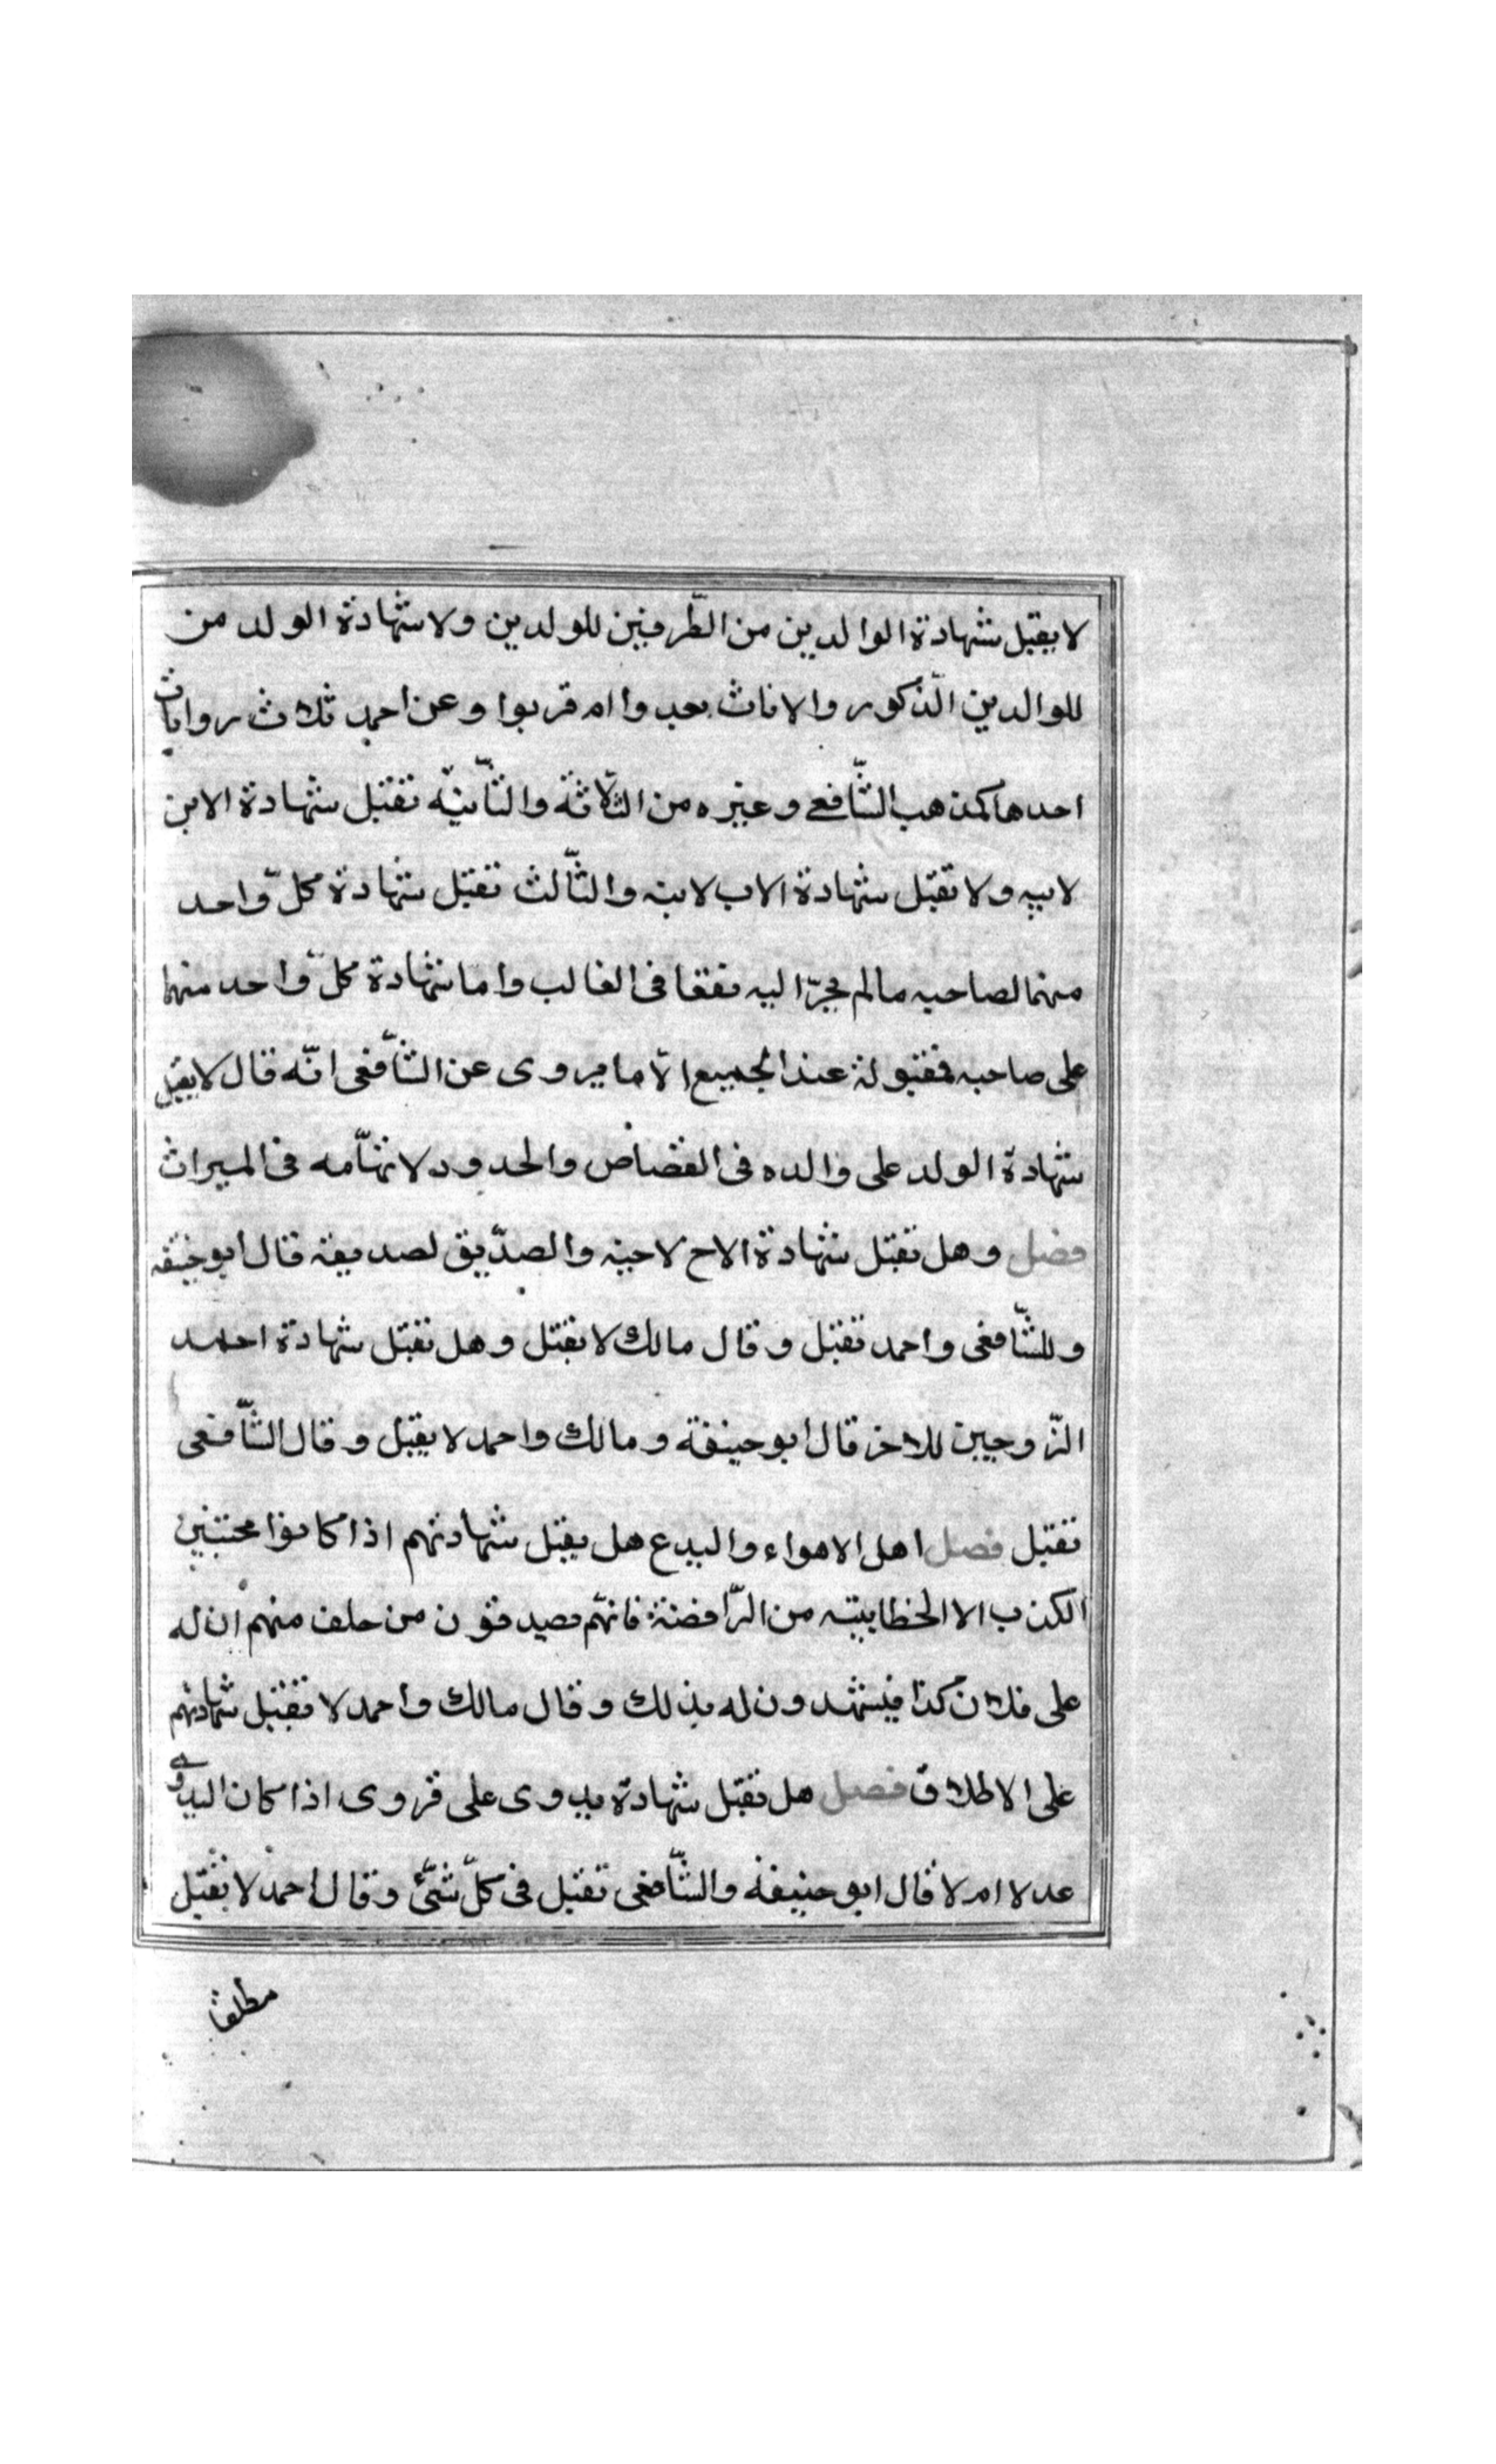 لا يقبل شهادة الوالدين من الطّرفين للولدين ولا شهادة الولد من
للوالدين الذّكور والاناث بعدوا ام قربوا وعن احمد ثلاث روايات
احدها كمذهب الشّافعي وغيره من الثّلاثة والثّانيّه تقبل شهادة الابن
لابيه ولا تقبل شهادة الاب لابنه والثّالث تقبل شهادة كلّ واحد
منهما لصاحبه مالم يجرّ اليه نفعا فى الغالب واما شهادة كلّ واحد منهما
على صاحبه فمقبولة عند الجميع الاّ ما يروى عن الشّافعى انّه قال لا يقبل
شهادة الولد على والده فى القصاص والحدود لاتهّامه فى الميراث
فصل وهل تقبل شهادة الاخ لاخيه والصدّيق لصديقه قال ابو حنيفه
وللشّافعى واحمد تقبل وقال مالك لا يقبل وهل تقبل شهادة احد
الزّوجين للاخر قال ابو حنيفة ومالك واحمد لا يقبل وقال الشّافعى
تقبل فصل اهل الاهواء والبدع هل يقبل شهادتهم اذا كانوا مجتنبين
الكذب الا الخطابيته من الرّافضة فانهّم يصدقون من حلف منهم ان له
على فلان كذا فيشهدون له بذلك وقال مالك واحمد لا تقبل شهادتهم
على الاطلاق فصل هل تقبل شهادة بدوى على قروى اذا كان البدوي
عدلا ام لا قال ابو حنيفة والشّافعى تقبل فى كلّ شئّ وقال احمد لا يقبل
مطلقا